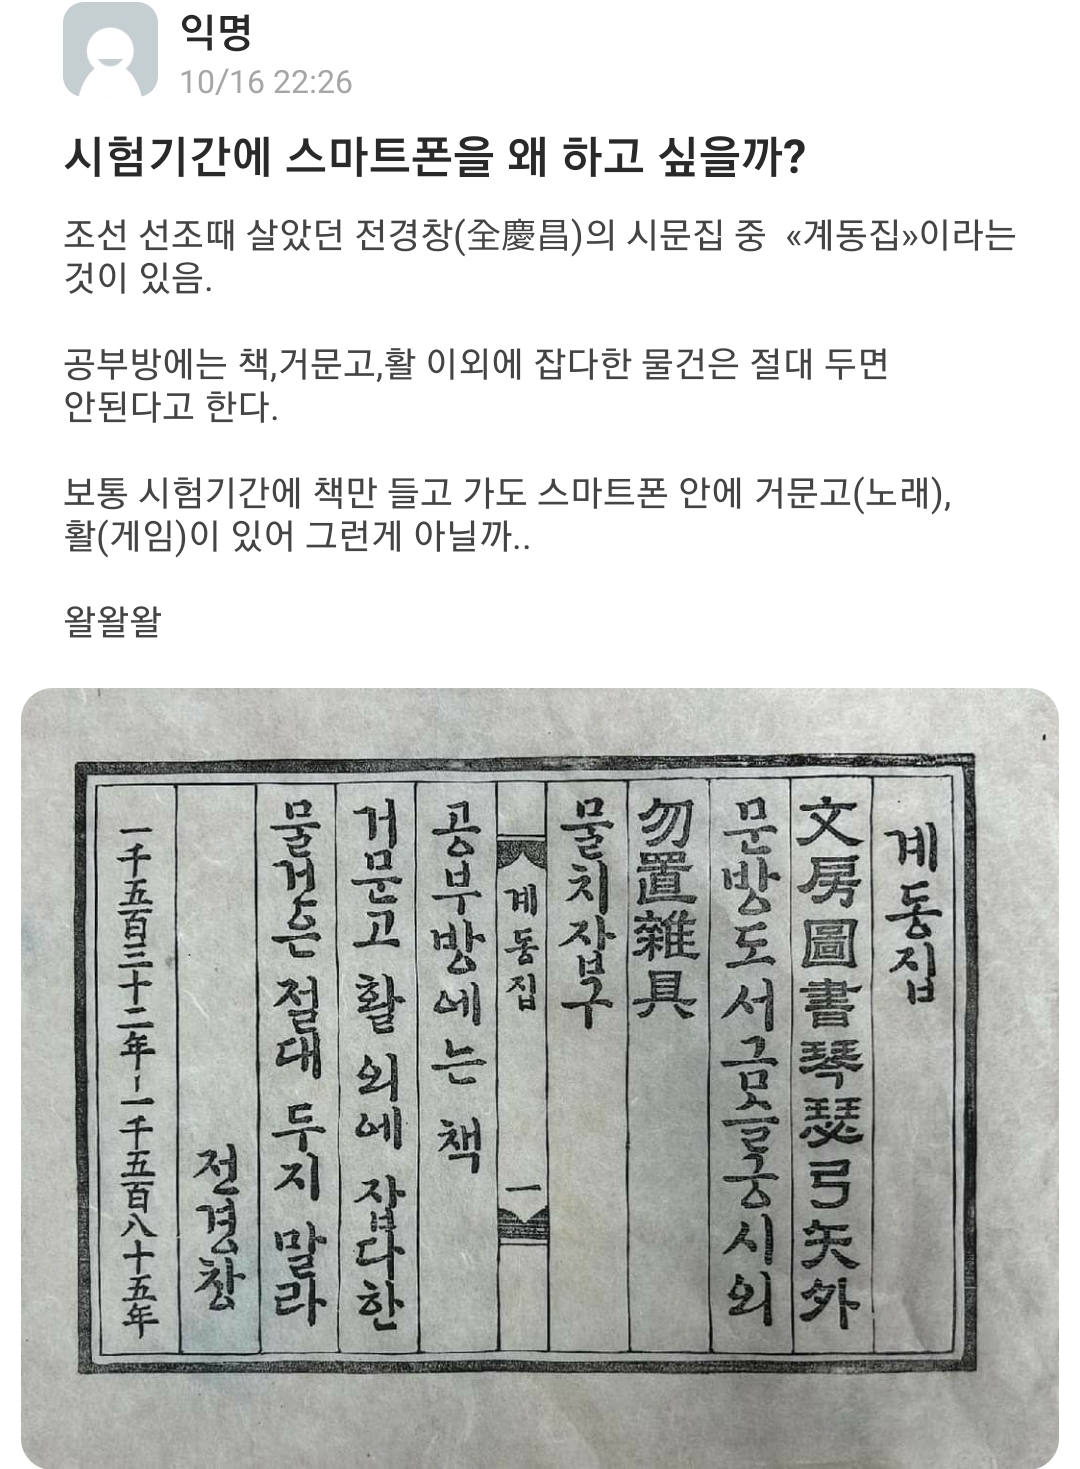 익명
10/16 22:26
시험기간에 스마트폰을 왜 하고 싶을까?
조선 선조때 살았던 전경창(全慶昌)의 시문집 중 «계동집»이라는
것이 있음.
공부방에는 책,거문고,활 이외에 잡다한 물건은 절대 두면
안된다고 한다.
보통 시험기간에 책만 들고 가도 스마트폰 안에 거문고(노래),
활(게임)이 있어 그런게 아닐까..
왈왈왈
계동집
文房圖書琴瑟弓矢外
문방도서금슬궁시외
勿置雜具
물치잡구
계동집 一
공부방에는 책
거문고 활 외에 잡다한
물건은 절대 두지 말라
전경창
一千五百三十二年-一千五百八十五年